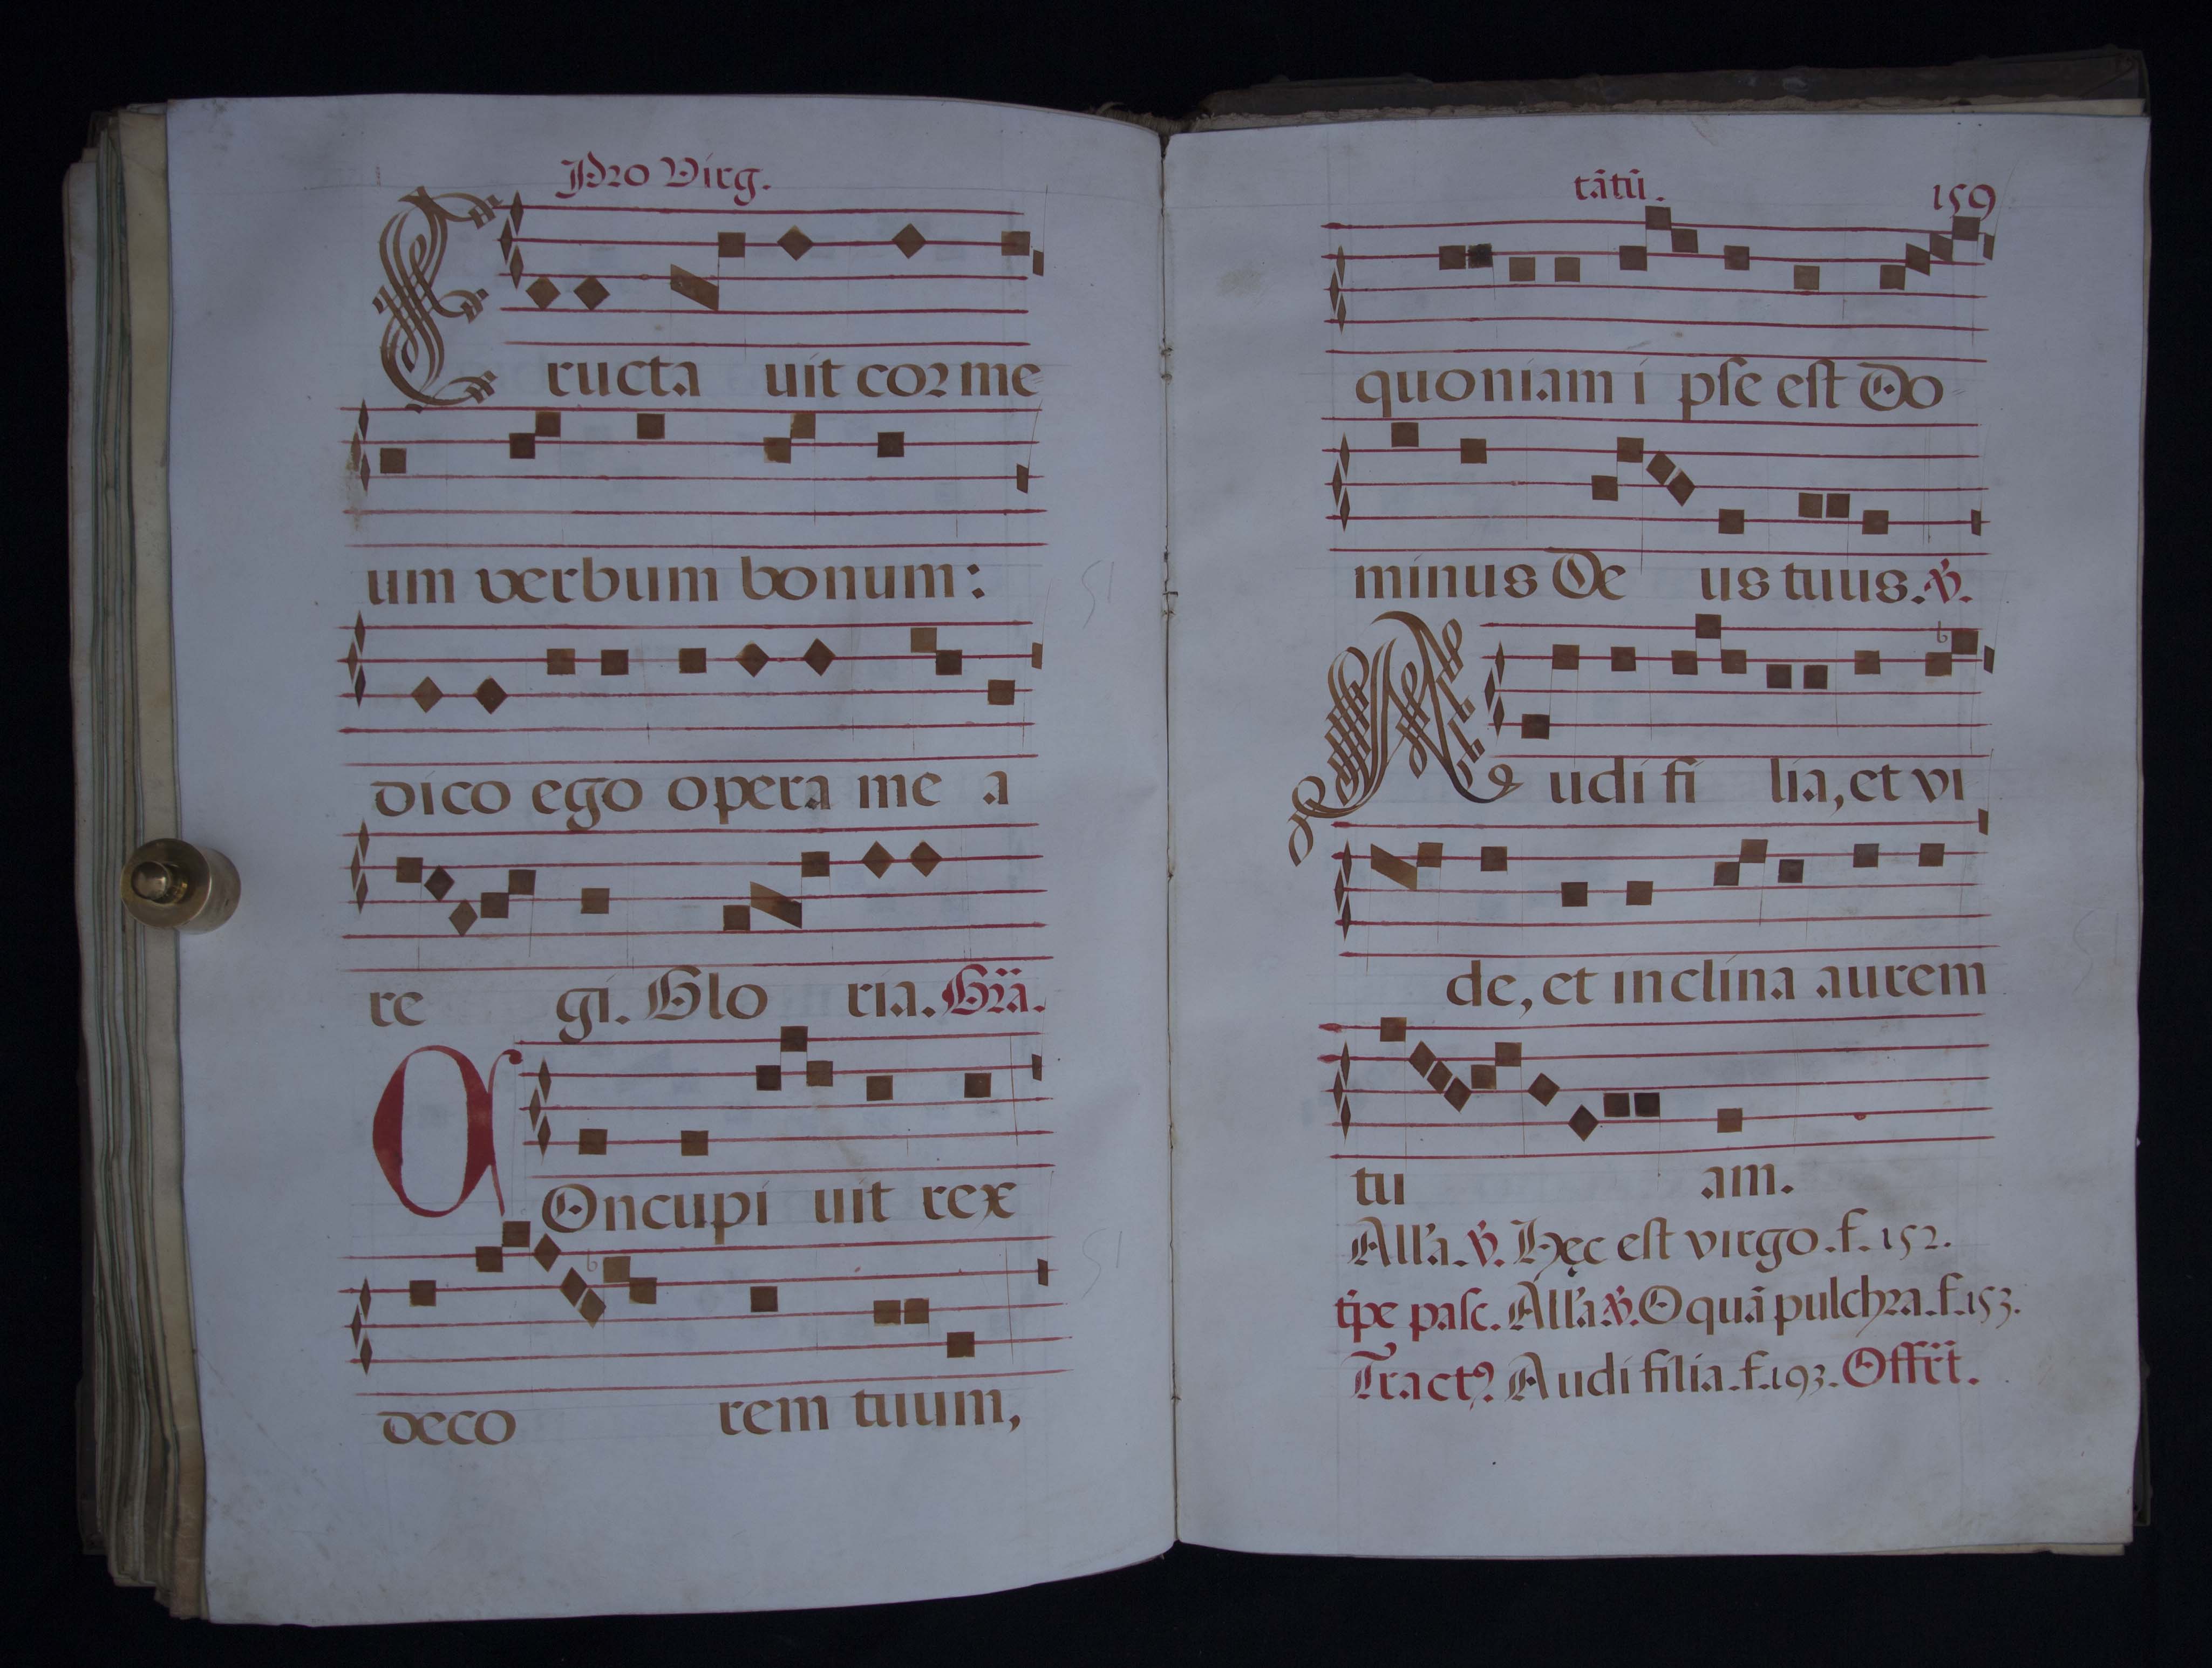 Pro Virg.
Eructauit cor me-
um verbum bonum:
dico ego opera mea
regi. Gloria. Grã.
COncupiuit rex
decorem tuum,
tãtũ. 159
quoniam ipse est Do-
minus Deus tuus. ℣.
Audi filia, et vi
de, et inclina aurem
tuam.
All'a. ℣. Hęc est virgo. f. 152.
tp̃e pasc. All'a ℣. O quã pulchra. f. 153.
Tractꝰ Audi filia. f. 193. Offrt.
51
51
51